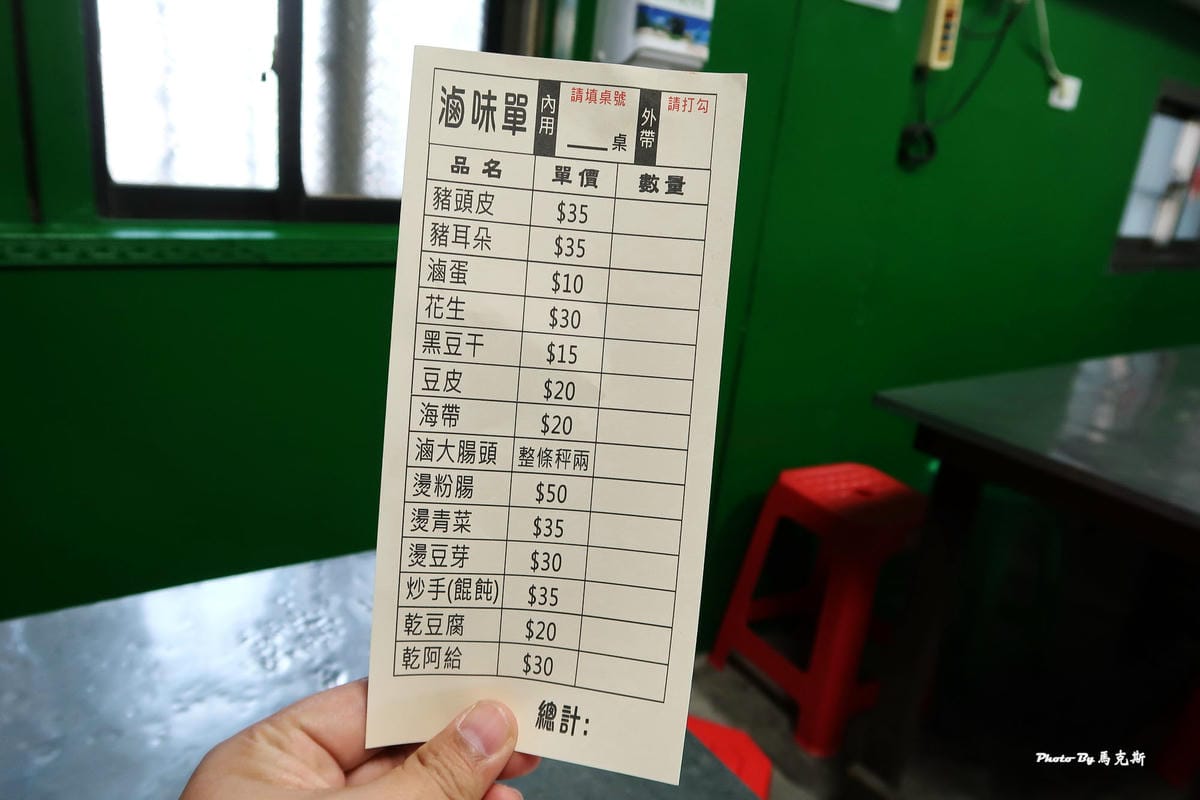 滷味單 內用 請填桌號 ＿桌 外帶 請打勾
品名 單價 數量
豬頭皮 $35
豬耳朵 $35
滷蛋 $10
花生 $30
黑豆干 $15
豆皮 $20
海帶 $20
滷大腸頭 整條秤兩
燙粉腸 $50
燙青菜 $35
燙豆芽 $30
炒手(餛飩) $35
乾豆腐 $20
乾阿給 $30
總計:
Photo By 馬克斯